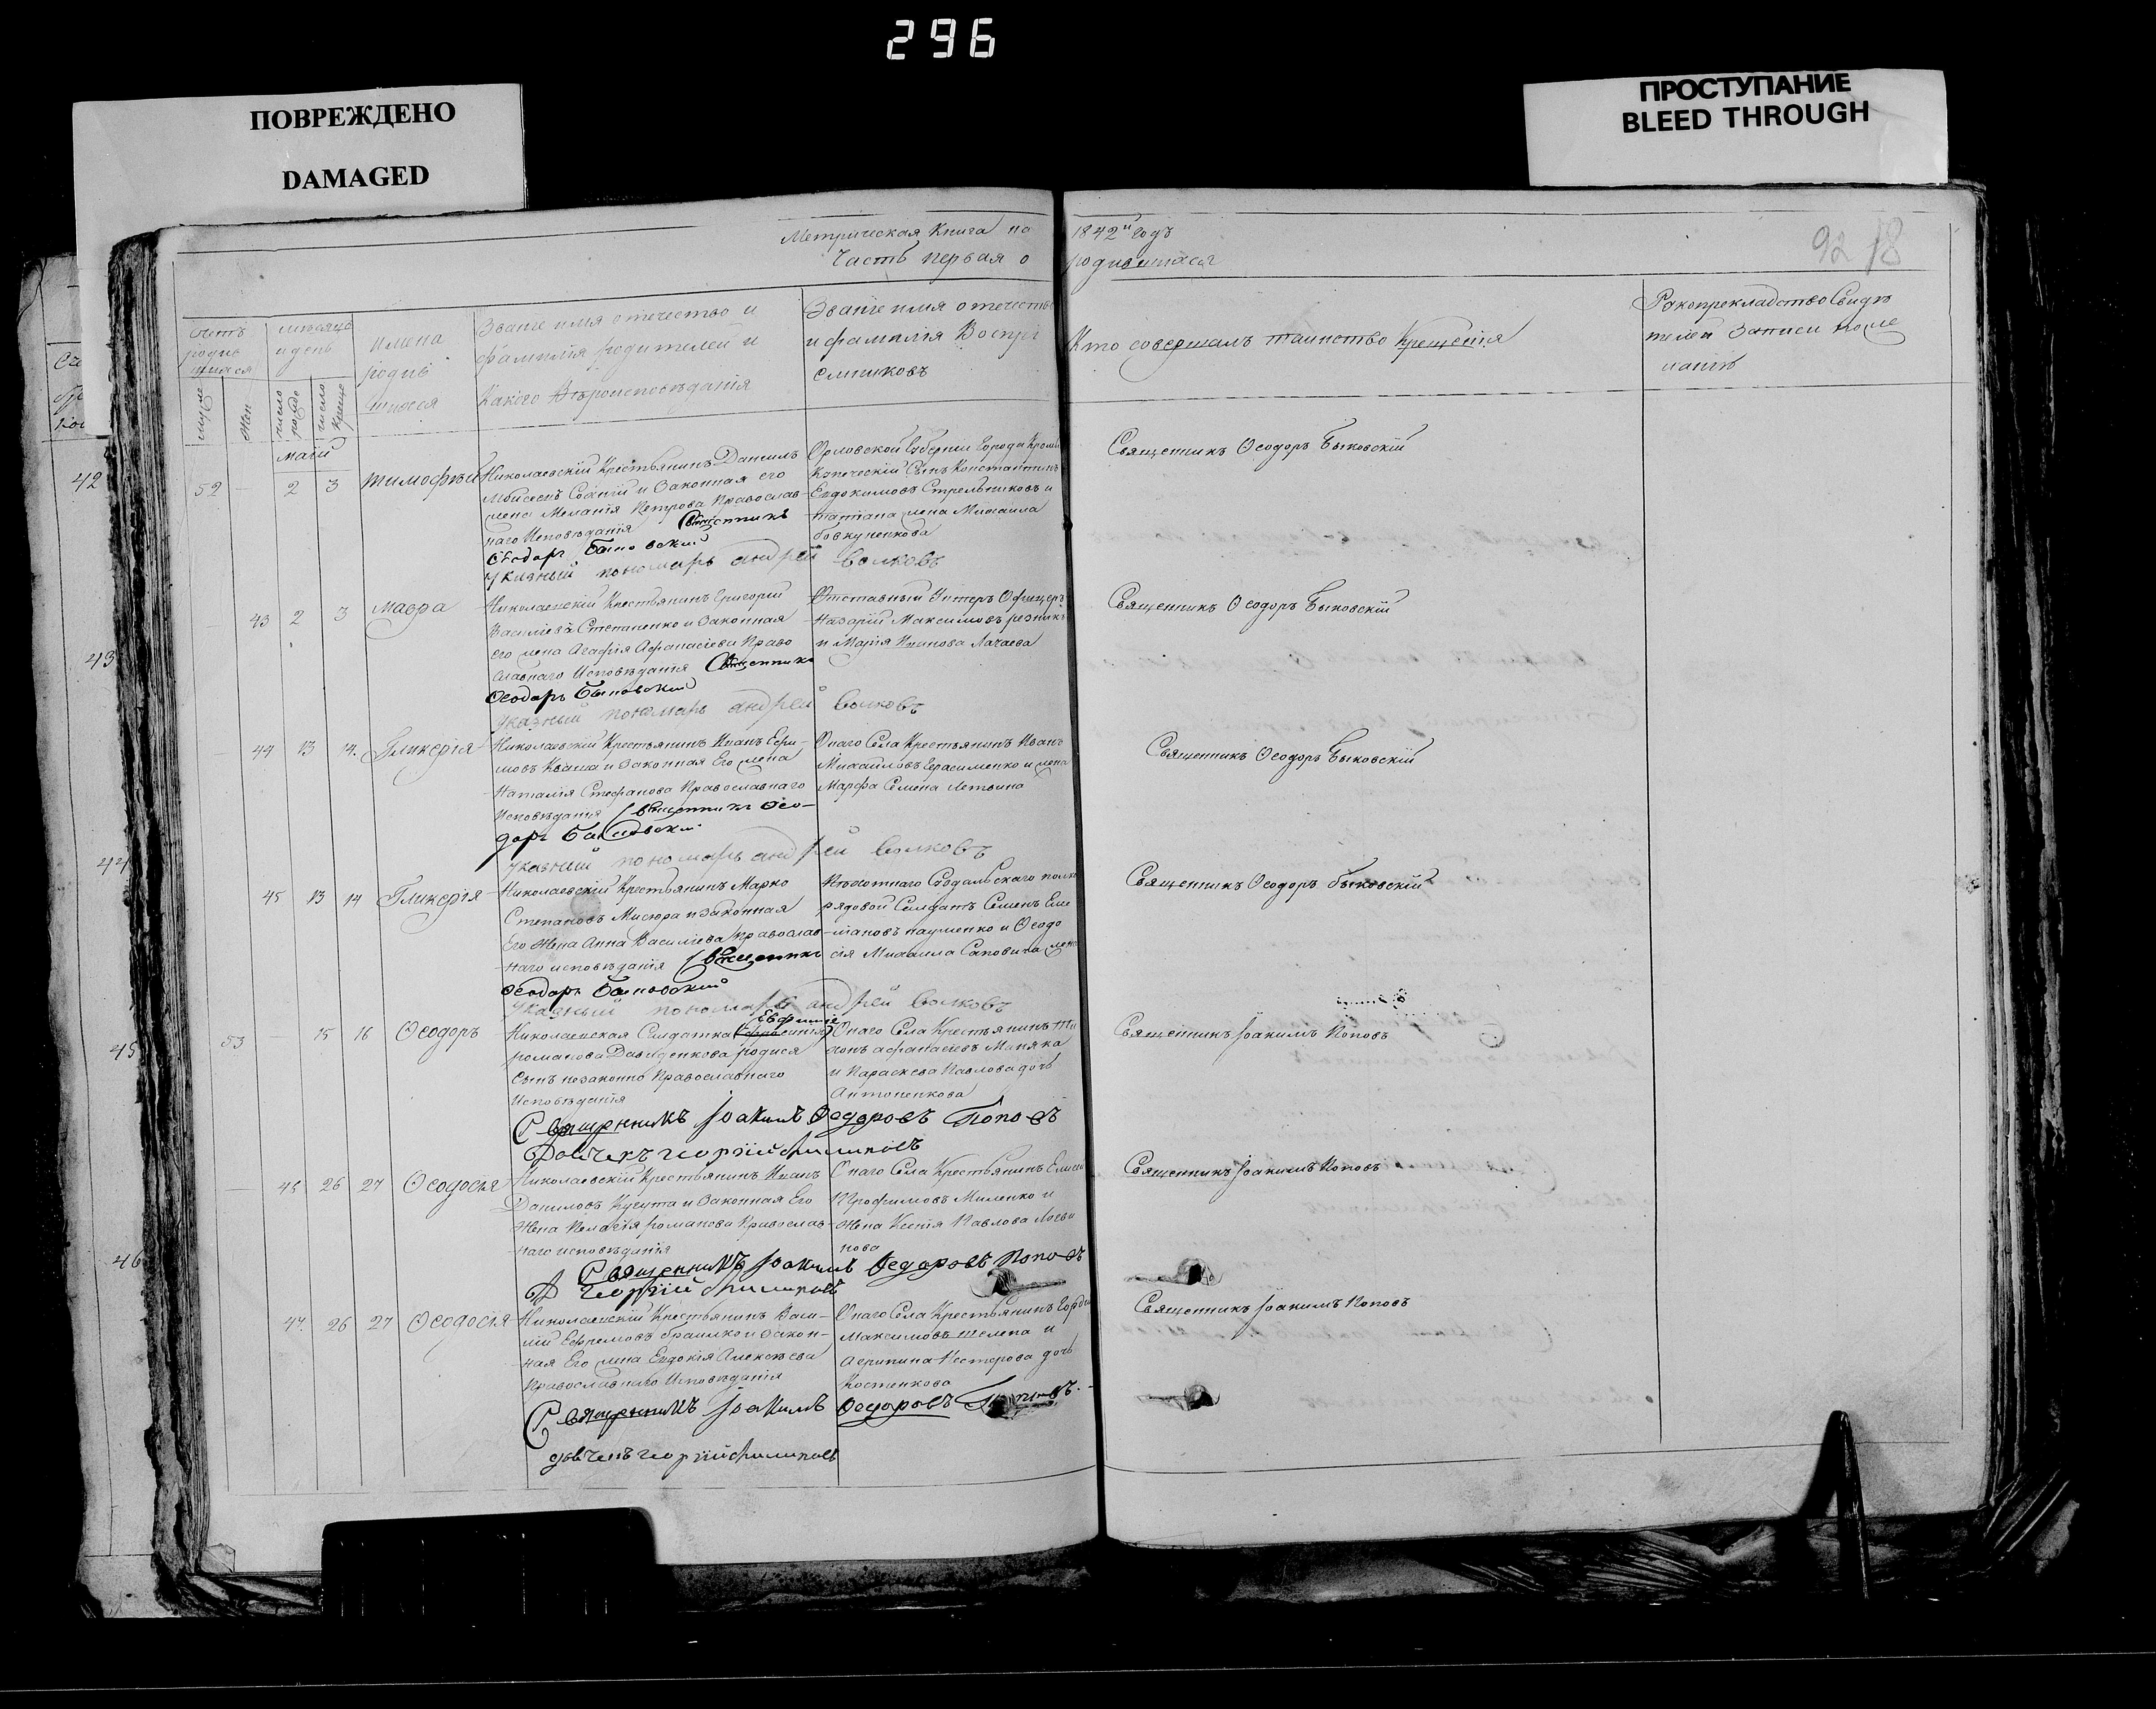 296
ПОВРЕЖДЕНО
DAMAGED
ПРОСТУПАНИЕ
BLEED THROUGH
Метрическая Книга на 1842й годъ
Часть первая о родившихся
92 18
Счетъ родив шихся
муже
жен
мѣсяцъ и день
число рожде
число креще
имена родив шихся
Званіе имя отечество и
фамилія родителей и
Какого Вѣроисповѣданія
Званіе имя отечество
и фамилія Воспрі
емниковъ
Кто совершалъ таинство Крещенія
Рукоприкладство Свидѣ
телей записи по же
ланію
маіи
52 2 3 тимофѣй
Николаевскій Крестьянинъ Данилъ
жена Меланія Петрова Православ-
наго Исповѣданія Священникъ
Ѳеодоръ Быковскій
указный пономарь андрей волковъ
Орловской Губерніи Города Кромъ
Купеческій Сынъ Константинъ
Евдокимовъ Стрельниковъ и
татіана жена Михаила
Священникъ Ѳеодоръ Быковскій
43 2 3 Мавра
Николаевскій Крестьянинъ Григорій
Василіевъ Степаненко и Законная
его жена Агафія Афанасіева Право
славнаго Исповѣданія Священникъ
Ѳеодоръ Быковскій
указный пономарь андрей волковъ
Отставный Унтеръ Офицеръ
Назарій Максимовъ резникъ
и Марія Иванова
Священникъ Ѳеодоръ Быковскій
44 13 14. Гликерія
Николаевскій Крестьянинъ Иванъ Ефи-
мовъ Кваша и Законная Его жена
Наталія Стефанова Православнаго
Исповѣданія Священникъ Ѳео-
доръ Быковскій
указный пономарь андрей волковъ
Онаго Села Крестьянинъ Иванъ
Михаиловъ Герасименко и жена
Марфа Семена
Священникъ Ѳеодоръ Быковскій
45 13 14 Гликерія
Николаевскій Крестьянинъ Марко
Степановъ Мисюра и Законная
Его Жена Анна Василіева православ-
наго исповѣданія Священникъ
Ѳеодоръ Быковскій
указный пономарь андрей волковъ
Пѣхотнаго Суздальскаго полка
рядовой Солдатъ Семенъ Еме
ліановъ науменко и Ѳеодо
сія Михаила жена
Священникъ Ѳеодоръ быковскій
53 15 16 Ѳеодоръ
Евфиміе
Николаевская Солдатка
романова Давиденкова родися
сынъ незаконно Православнаго
Исповѣданія
Священникъ Іоакимъ Ѳедоровъ Поповъ
Дьячекъ георгій филиповъ
Онаго Села Крестьянинъ Ти
хонъ афанасіевъ
и Параскева Павлова дочь
Антоненкова
Священникъ Іоакимъ Поповъ
46 26 27 Ѳеодосія
Николаевскій Крестьянинъ Иванъ
Даниловъ и Законная Его
Жена Пелагія романова Православ-
наго исповѣданія
Священникъ Іоакимъ Ѳедоровъ Поповъ
Д георгій филиповъ
Онаго Села Крестьянинъ
Трофимовъ Миленко и
Жена Ксенія Павлова
нова
Священникъ Іоакимъ Поповъ
47. 26 27 Ѳеодосія
Николаевскій Крестьянинъ Васи-
лій Ефремовъ и Закон-
ная Его жена Евдокія Алексѣева
Православнаго Исповѣданія
Священникъ Іоакимъ Ѳедоровъ Поповъ.
дьячекъ георгій филиповъ
Онаго Села Крестьянинъ Гордій
Максимовъ шелепа и
Агрипина Нестерова дочь
Костенкова
Священникъ Іоакимъ Поповъ
42
43
44
45
46